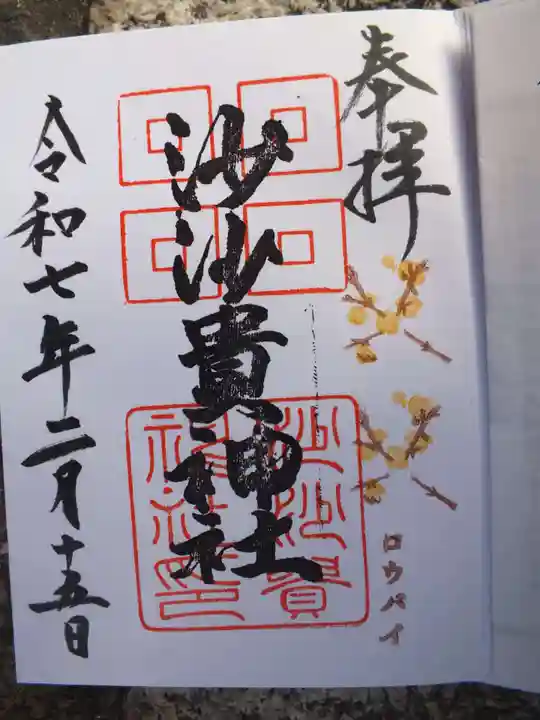 奉拝
沙沙貴神社
沙沙貴
神社印
ロウバイ
令和七年二月十五日